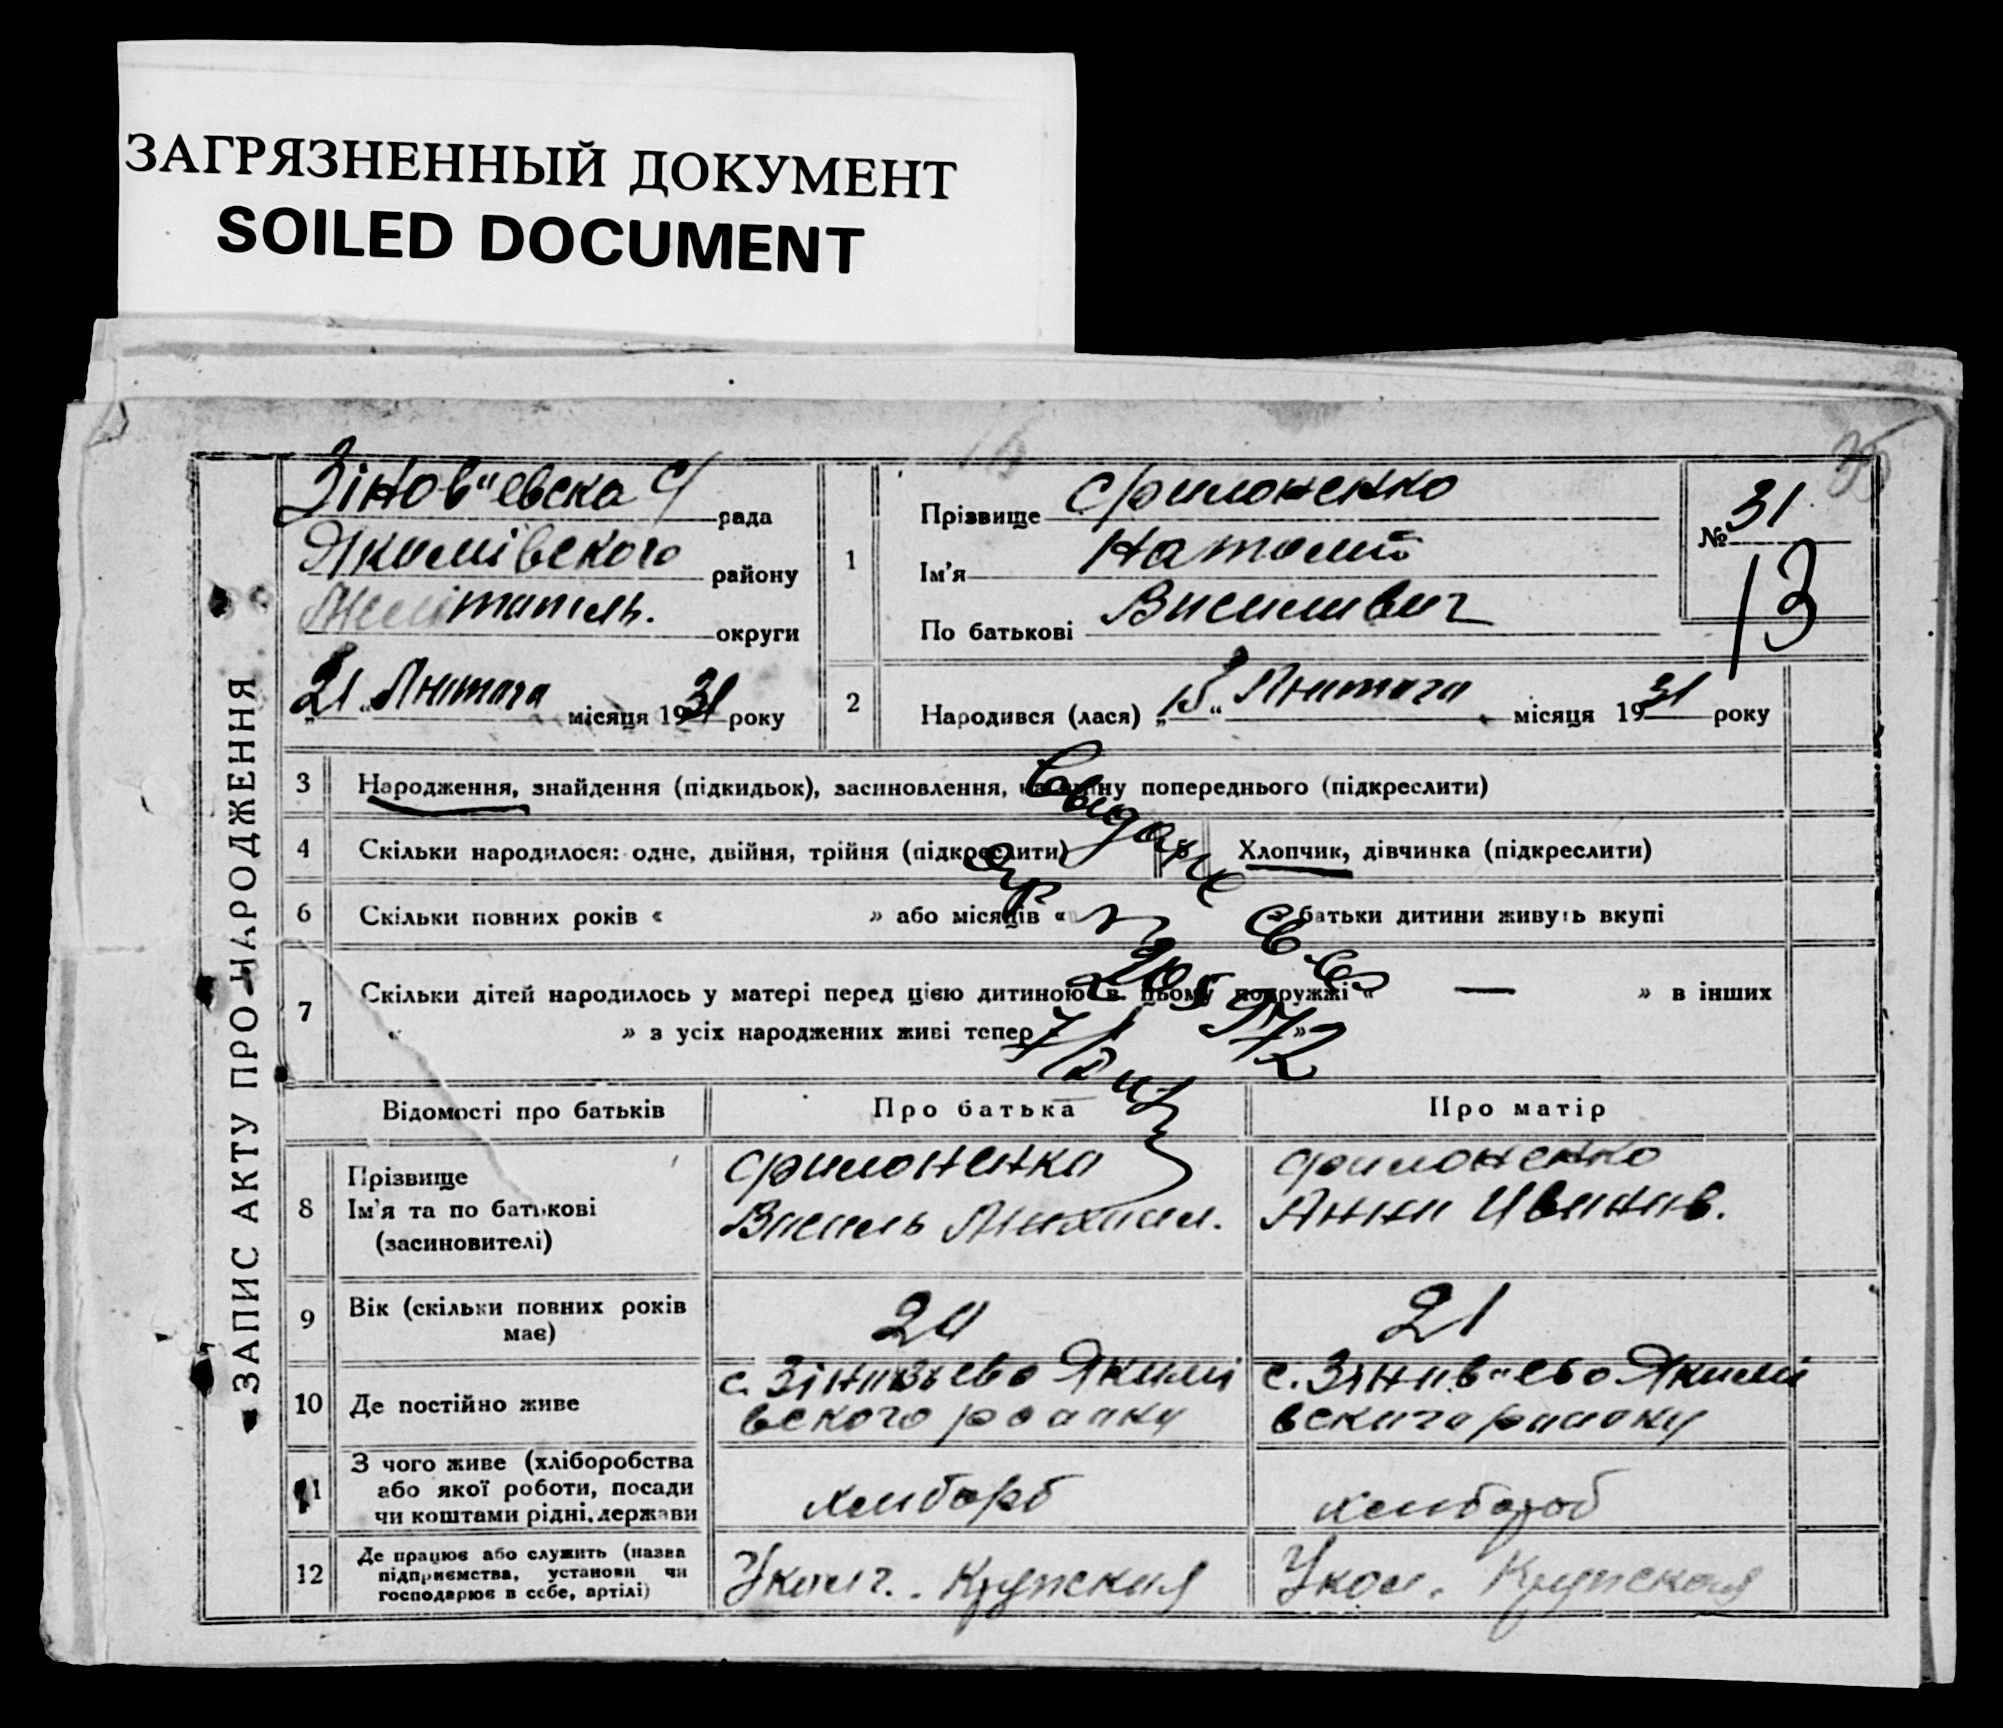 ЗАГРЯЗНЕННЫЙ ДОКУМЕНТ
SOILED DOCUMENT
« ЗАПИС АКТУ ПРО НАРОДЖЕННЯ
35
Зінов"евска с/ рада
Якимівского району
Мелітатіль. округи
„21“ Лютага місяця 1931 року
1
Прізвище Филоненко
Ім'я Натолій
По батькові Василивич
№ 31
13
2
Народився (лася) „15“ Лютага місяця 1931 року
3 Народження, знайдення (підкидьок), засиновлення, на зміну попереднього (підкреслити)
4 Скільки народилося: одне, двійня, трійня (підкреслити)
5 Хлопчик, дівчинка (підкреслити)
6 Скільки повних років « » або місяців « » батьки дитини живуть вкупі
7 Скільки дітей народилось у матері перед цією дитиною в цьому подружжі « — » в інших
« » з усіх народжених живі тепер « »
Выдано св-во
205972
Відомості про батьків
Про батька
Про матір
8 Прізвище
Ім'я та по батькові
(засиновителі)
Филоненко
Василь Михаил.
Филоненко
Анна Иванив.
9 Вік (скільки повних років
має)
20
21
10 Де постійно живе
с. Зіновьево Якимі
вского раиону
с. Зінов"ево Якимі
вского раиону
11 З чого живе (хліборобства
або якої роботи, посади
чи коштами рідні, держави
хлибороб
хлибороб
12 Де працює або служить (назва
підприємства, установи чи
господарює в себе, артілі)
Крупская
Крупская